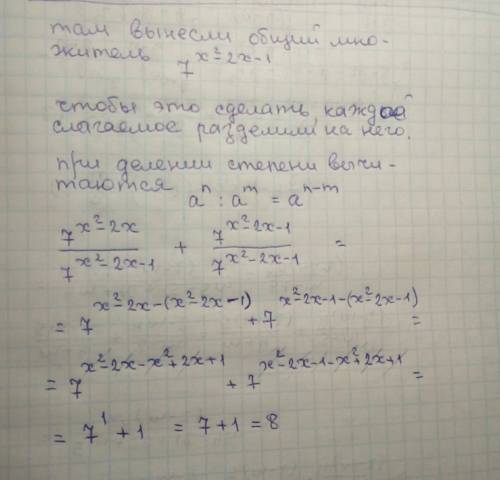 там вынесли общий мно-
житель 7^(x²-2x-1)
чтобы это сделать, каждое
слагаемое разделили на него.
при делении степени вычи-
таются aⁿ : aᵐ = aⁿ⁻ᵐ
7^(x²-2x)/7^(x²-2x-1) + 7^(x²-2x-1)/7^(x²-2x-1) =
= 7^(x²-2x-(x²-2x-1)) + 7^(x²-2x-1-(x²-2x-1)) =
= 7^(x²-2x-x²+2x+1) + 7^(x²-2x-1-x²+2x+1) =
= 7¹ + 1 = 7+1 = 8